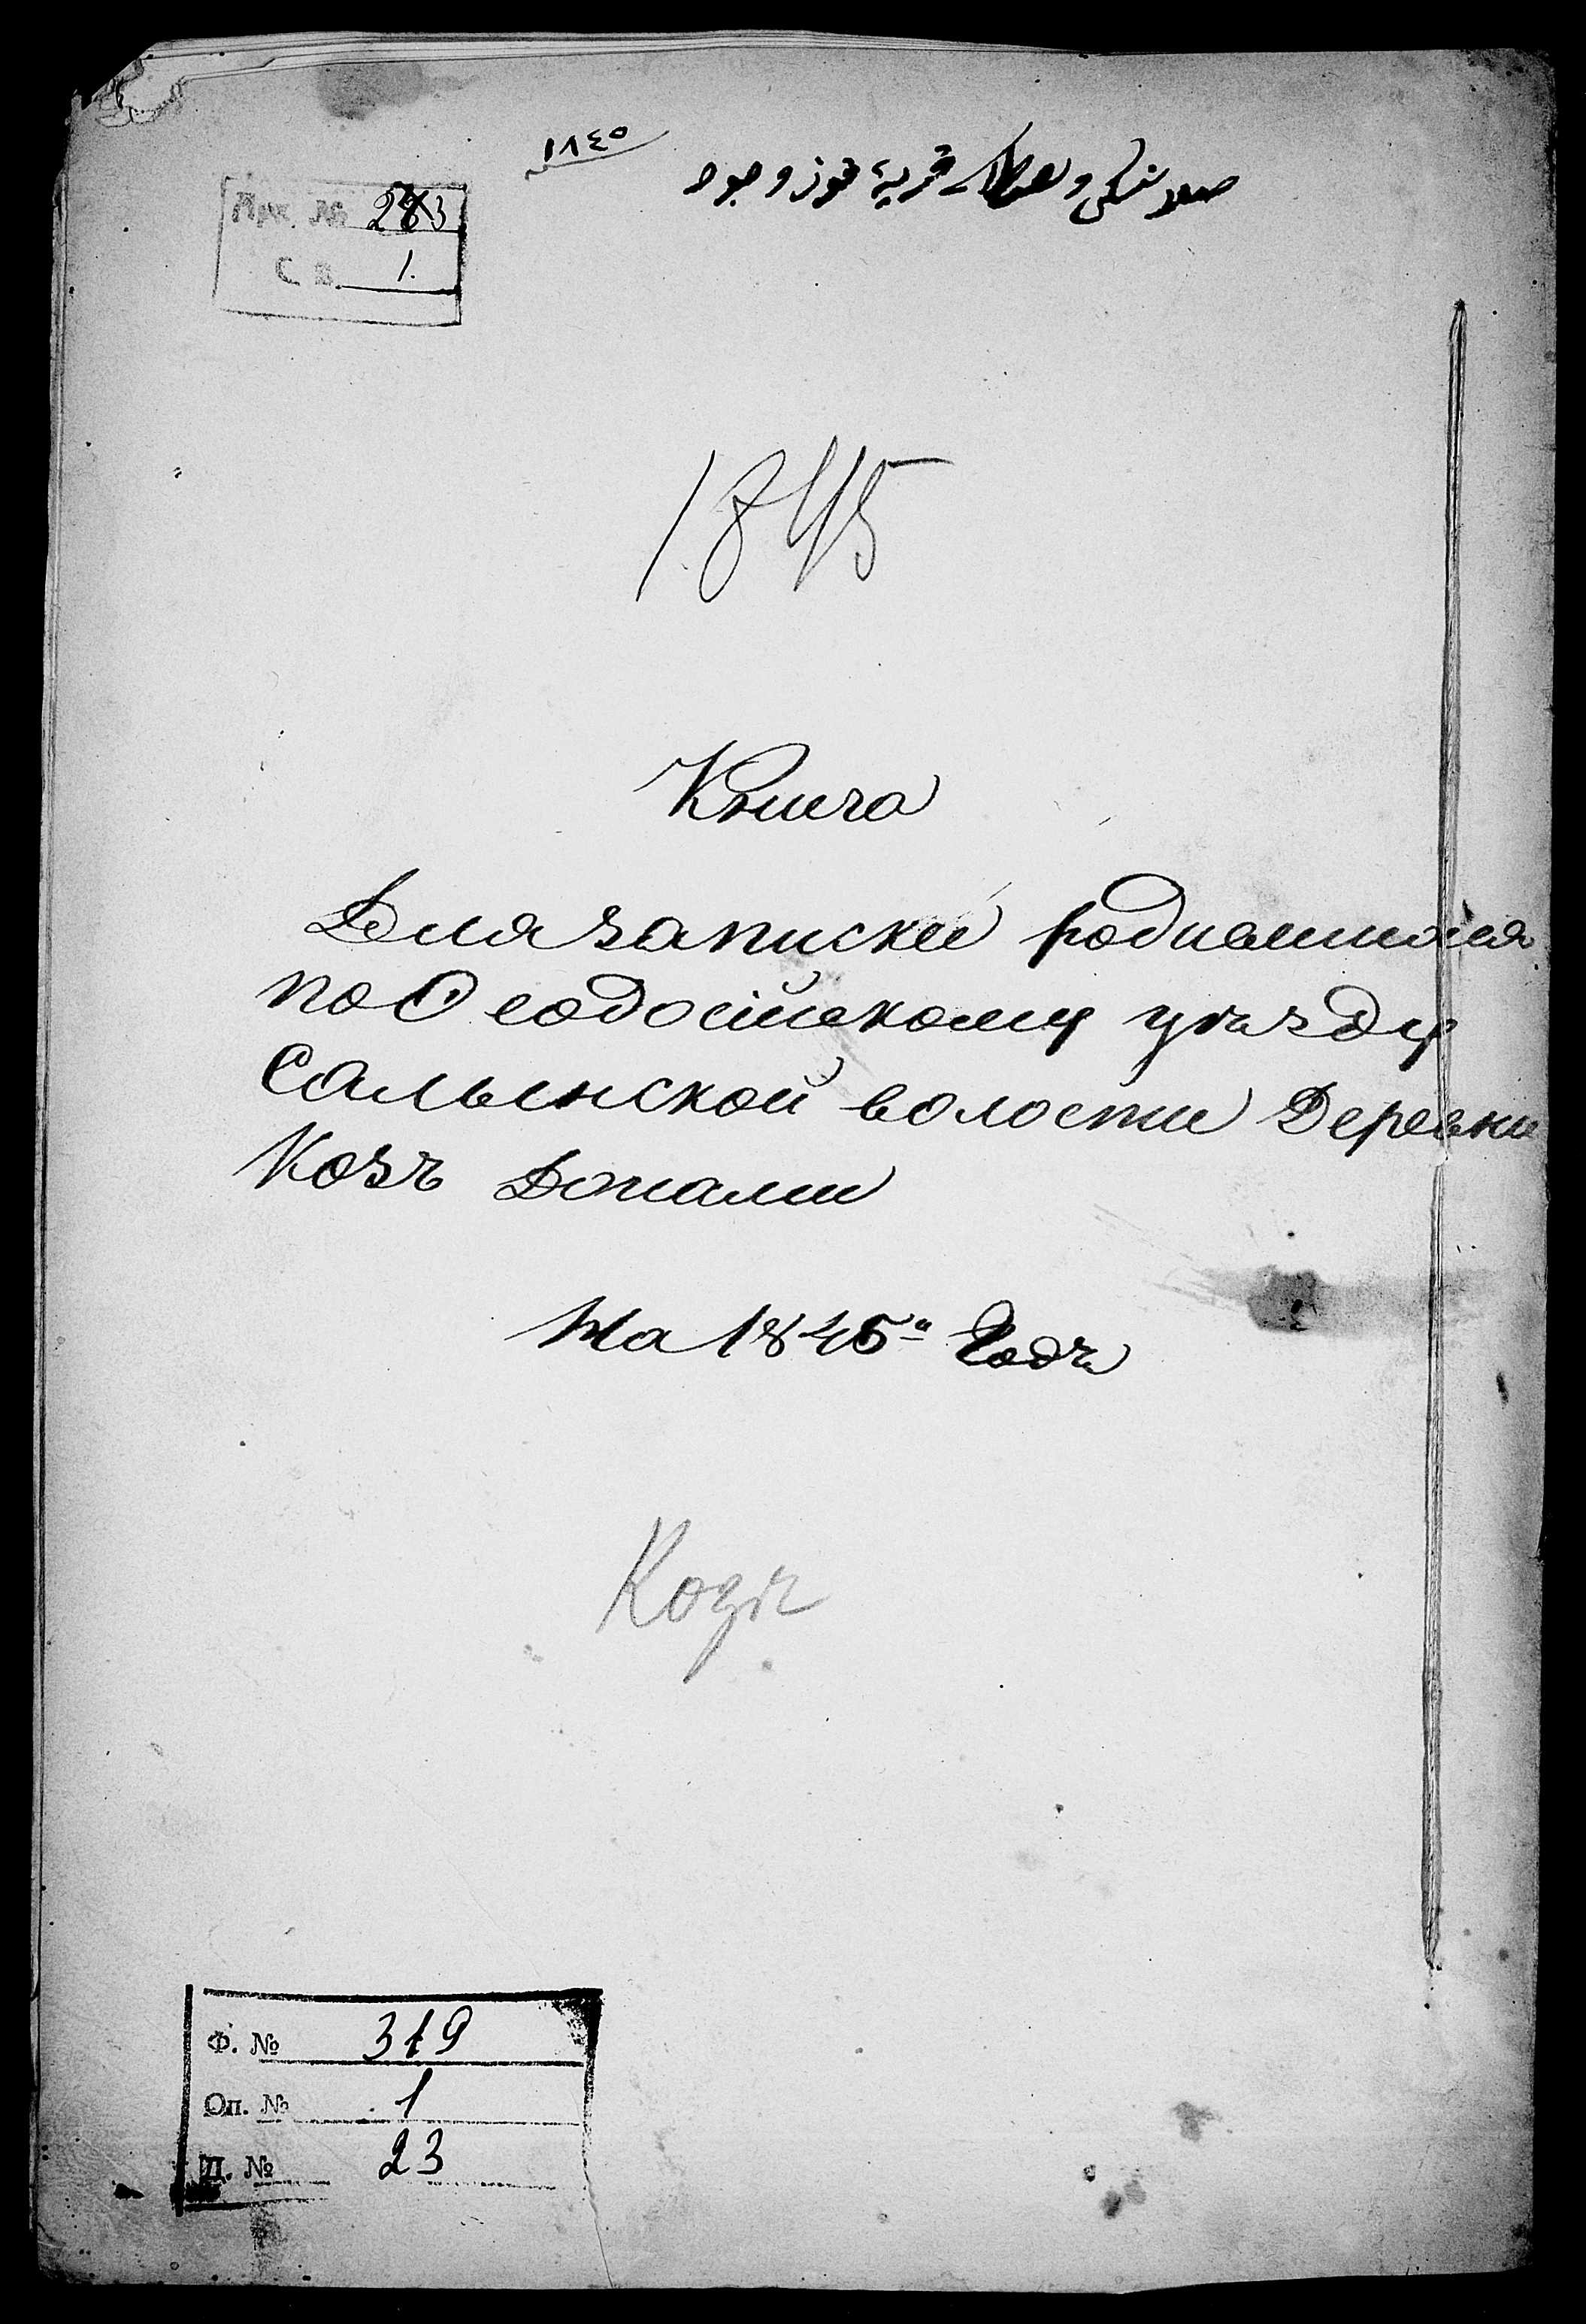 ١٨٤٥
قرية قوز
Арх. № 283
С в. 1.
1845
Книга
Для записки родившихся
по Ѳеодосійскому уѣзду
Салынской волости Деревни
Козъ
На 1845й Годъ
Ф. № 319
Оп. № 1
Д. № 23